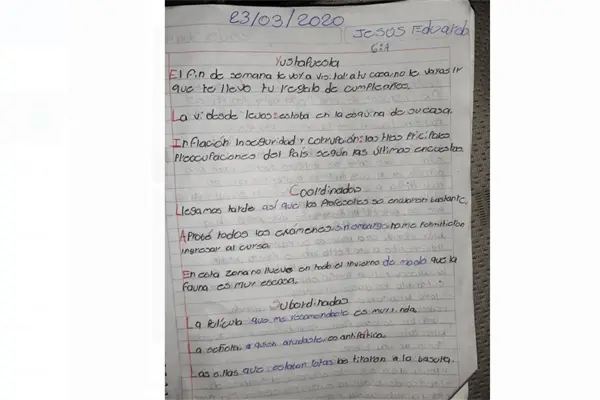 23/03/2020
Jesus Eduardo
6:A
Yustapuesta
El fin de semana te voy a visitar a tu casa, no te vayas ir
que te llevo tu regalo de cumpleaños.
La vi desde lejos: estaba en la esquina de su casa.
Inflación, Inseguridad y corrupción: las tres Pricipales
Preocupaciones del País según las últimas encuestas.
Coordinadas
Llegamos tarde así que los Profesores se enojaron bastante.
Aprobé todos los exámenes sin embargo no me Permitieron
ingresar al curso.
En esta zona no llueve en todo el invierno de modo que la
fauna es muy escasa.
Subordinadas
La Película que me recomendaste es muy linda.
La señora, a quien ayudaste, es antipática.
Las sillas que estaban rotas las tiraron a la basura.